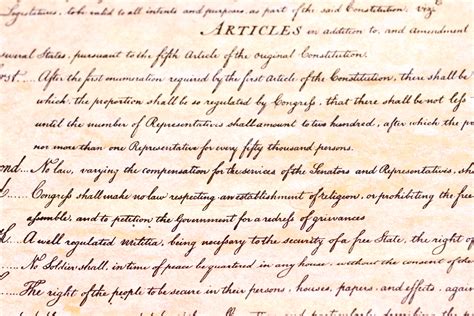 Legislatures, to be valid to all intents and purposes, as part of the said Constitution, viz
ARTICLES in addition to, and Amendment
several States, pursuant to the fifth Article of the original Constitution.
After the first enumeration required by the first Article of the Constitution, there shall be
which, the proportion shall be so regulated by Congress, that there shall be not less
until the number of Representatives shall amount to two hundred, after which the pro
nor more than one Representative for every fifty thousand persons.
ond.... No law, varying the compensation for the services of the Senators and Representatives, sha
Congress shall make no law respecting an establishment of religion, or prohibiting the free
assemble, and to petition the Government for a redress of grievances
A well regulated militia, being necessary to the security of a free State, the right of
No Soldier shall, in time of peace be quartered in any house, without the consent of
The right of the people to be secure in their persons, houses, papers, and effects, again
and particularly describing the